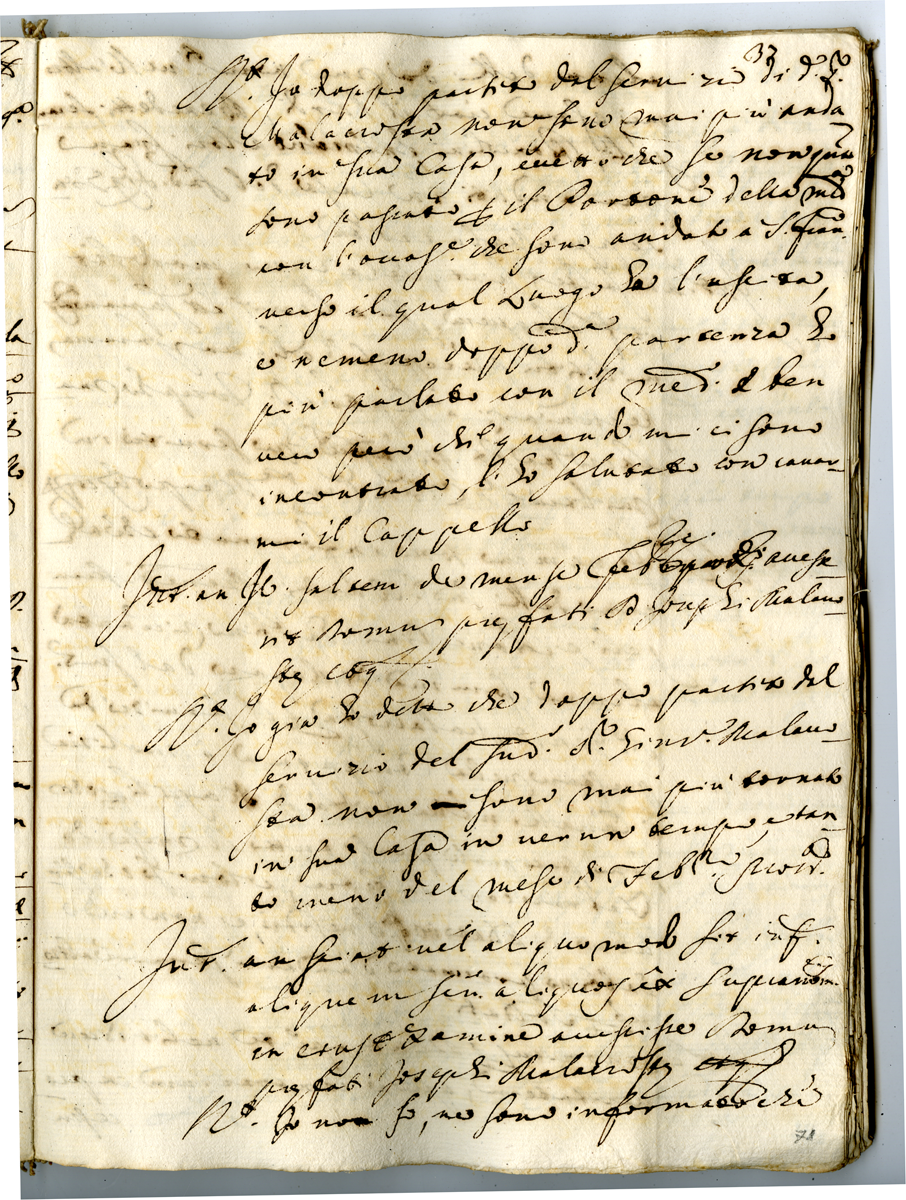 37
R.t Io doppo partito dal servizio di d.o
Malacrosta non sono mai più anda
to in sua Casa, eccetto che se non
sono passato p il Portone della med
con l'occas.e che sono andato a S. Fran.
verso il qual Luogo ha l'uscita,
e nemeno doppo d.a partenza ho
più parlato con il med.o è ben
vero però che quando mi ci sono
incontrato, l'ho salutato con cavar
mi il Cappello
Int. an Ip. saltem de mense Febb
Domum prefati D. Josephi Malacro
stę
R.t Io già ho detto che doppo partito dal
servizio del sud.o S.r Malacro
sta non sono mai più tornato
in sua Casa in verun tempo, e tan
to meno del mese di Febb.ro
Int. an sciat vel aliquo modo sit inf.
aliquem seu aliquos ex
in examine accessisse Domum
prefati Josephi Malacrostę
R.t Io non so, ne sono informato che
71